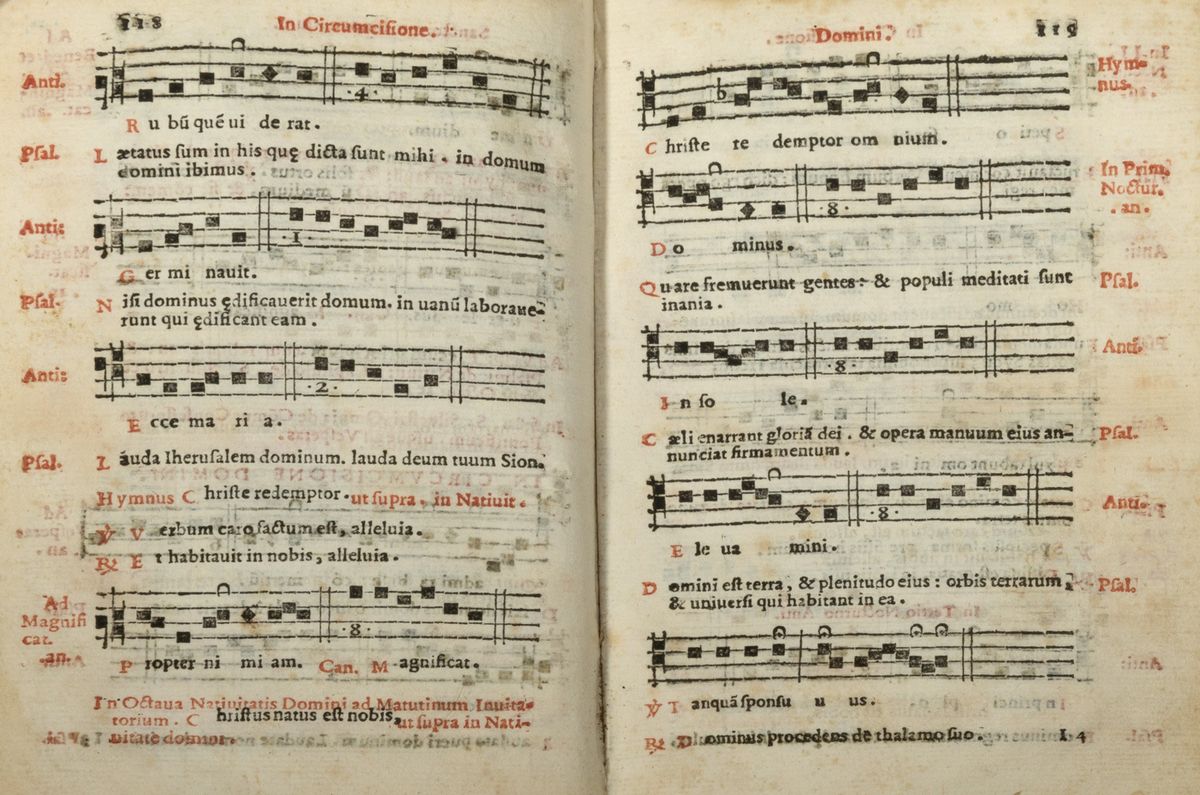 118 In Circumcisione.
Anti. .4.
R u bũ quẽ ui de rat.
Psal. L ætatus sum in his quę dicta sunt mihi . in domum
domini ibimus .
Anti: 1
G er mi nauit.
Psal. N isi dominus ędificauerit domum. in uanũ laboraue-
runt qui ędificant eam .
Anti: .2.
E cce ma ri a.
Psal. L auda Iherusalem dominum. lauda deum tuum Sion.
Hymnus C hriste redemptor . ut supra . in Natiuit.
℣ V erbum caro factum est, alleluia.
℟ E t habitauit in nobis, alleluia.
Ad
Magnifi
cat.
.an. .8.
P ropter ni mi am. Can. M agnificat.
In Octaua Natiuitatis Domini ad Matutinum Inuita-
torium . C hristus natus est nobis, ut supra in Nati-
uitate domini.
Domini. 119
Hym-
nus.
C hriste re demptor om nium.
In Prim.
Noctur.
. an. .8.
D o minus .
Q uare fremuerunt gentes: & populi meditati sunt Psal.
inania .
Anti. .8.
I n so le.
C æli enarrant gloriã dei . & opera manuum eius an- Psal.
nunciat firmamentum .
Anti. .8.
E le ua mini.
D omini est terra, & plenitudo eius : orbis terrarum, Psal.
& uniuersi qui habitant in ea.
℣ T anquã sponsu u us.
℟ D ominus procedens de thalamo suo. I 4